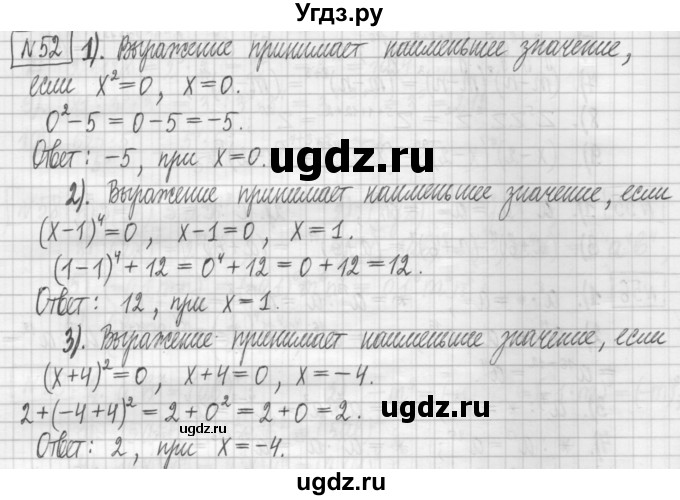 Угдз.ру
№52 1). Выражение принимает наименьшее значение,
если x²=0, x=0.
0²-5=0-5=-5.
Ответ: -5, при x=0.
ugdz.ru
2). Выражение принимает наименьшее значение, если
(x-1)⁴=0, x-1=0, x=1.
(1-1)⁴+12=0⁴+12=0+12=12.
Ответ: 12, при x=1.
3). Выражение принимает наименьшее значение, если
(x+4)²=0, x+4=0, x=-4.
2+(-4+4)²=2+0²=2+0=2. ugdz.ru
ugdz.ru
Ответ: 2, при x=-4.
ugdz.ru